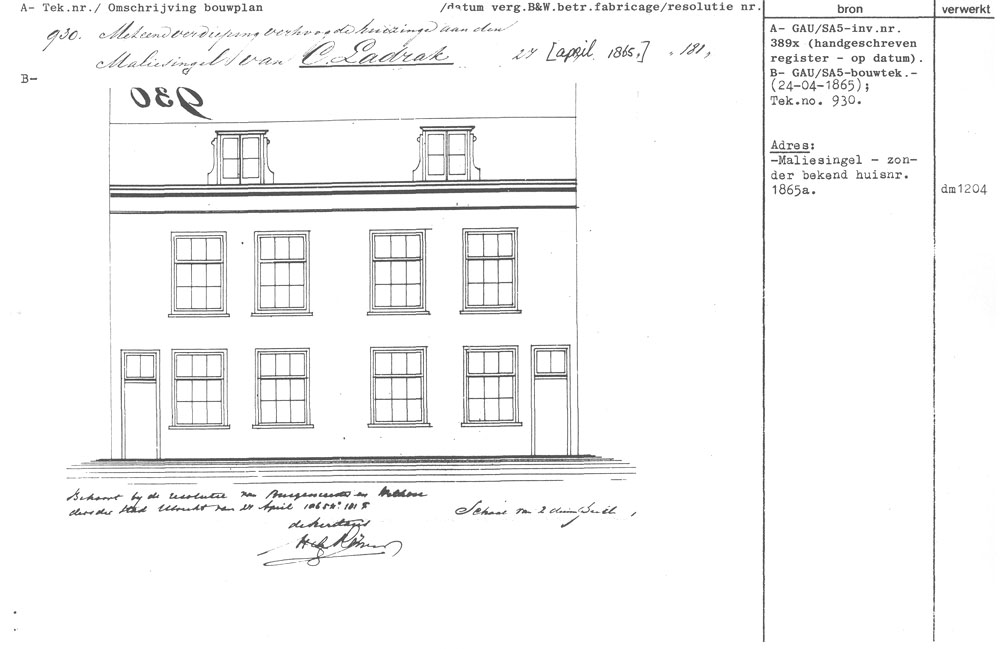 A- Tek.nr./ Omschrijving bouwplan /datum verg.B&W.betr.fabricage/resolutie nr.
930. Met eene verdieping verhoogde huizinge aan den
Maliesingel / van C. Ladrak 27 [april 1865,] 181,
B-
930
Behoort bij de resolutie van Burgemeester en
der stad Utrecht van 27 April 1865 N. 181
Schaal van 2 duim
bron
verwerkt
A- GAU/SA5-inv.nr.
389x (handgeschreven
register - op datum).
B- GAU/SA5-bouwtek.-
(24-04-1865);
Tek.no. 930.
Adres:
-Maliesingel - zon-
der bekend huisnr.
1865a.
dm1204